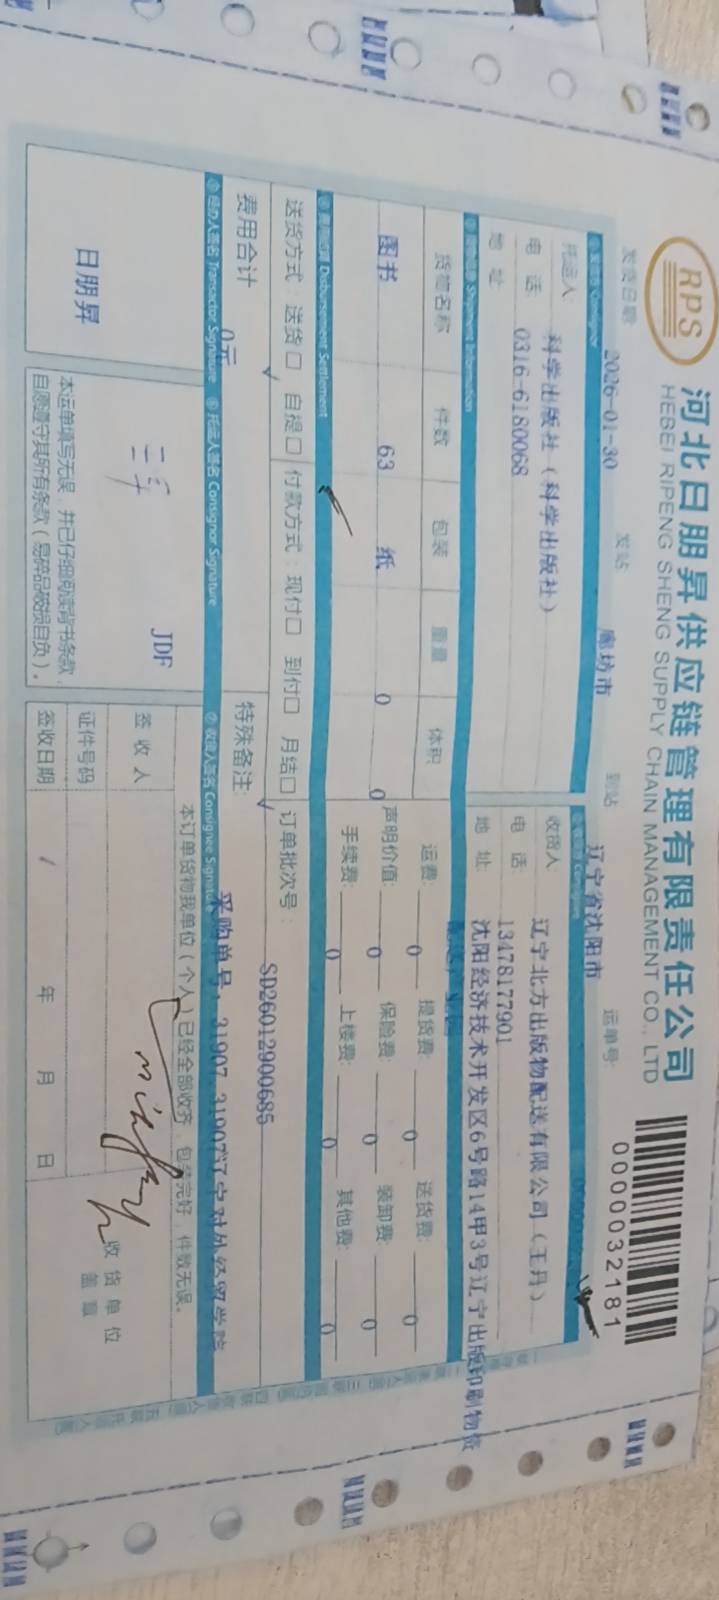 RPS
河北日朋昇供应链管理有限责任公司
HEBEI RIPENG SHENG SUPPLY CHAIN MANAGEMENT CO., LTD
0000032181
发货日期 2026-01-30 发站 廊坊市 到站 辽宁省沈阳市 运单号:
托运人 科学出版社(科学出版社)
电 话 0316-6180068
地 址
收货人 辽宁北方出版物配送有限公司(王丹)
电 话 13478177901
地 址 沈阳经济技术开发区6号路14甲3号辽宁出版印刷物资
配送产业园
③ 货物信息 Shipment Information
货物名称 件数 包装 重量 体积
图书 63 纸 0 0
运费: 0 提货费: 0 送货费: 0
声明价值: 0 保险费: 0 装卸费: 0
手续费: 0 上楼费: 0 其他费: 0
Disbursement Settlement
送货方式:送货□ 自提□ 付款方式:现付□ 到付□ 月结□ 订单批次号: SD26012900685
费用合计 0元 特殊备注: 采购单号:31907,31907辽宁对外经贸学院
⑤ 经办人签名 Transactor Signature ⑥ 托运人签名 Consignor Signature ⑦ 收货人签名 Consignee Signature
日朋昇
JDF
本运单填写无误,并已仔细阅读背书条款,
自愿遵守其所有条款(易碎品破损自负)。
本订单货物我单位(个人)已经全部收齐,包装完好,件数无误。
签 收 人
证件号码
签收日期 / 年 月 日
收货单位
盖章